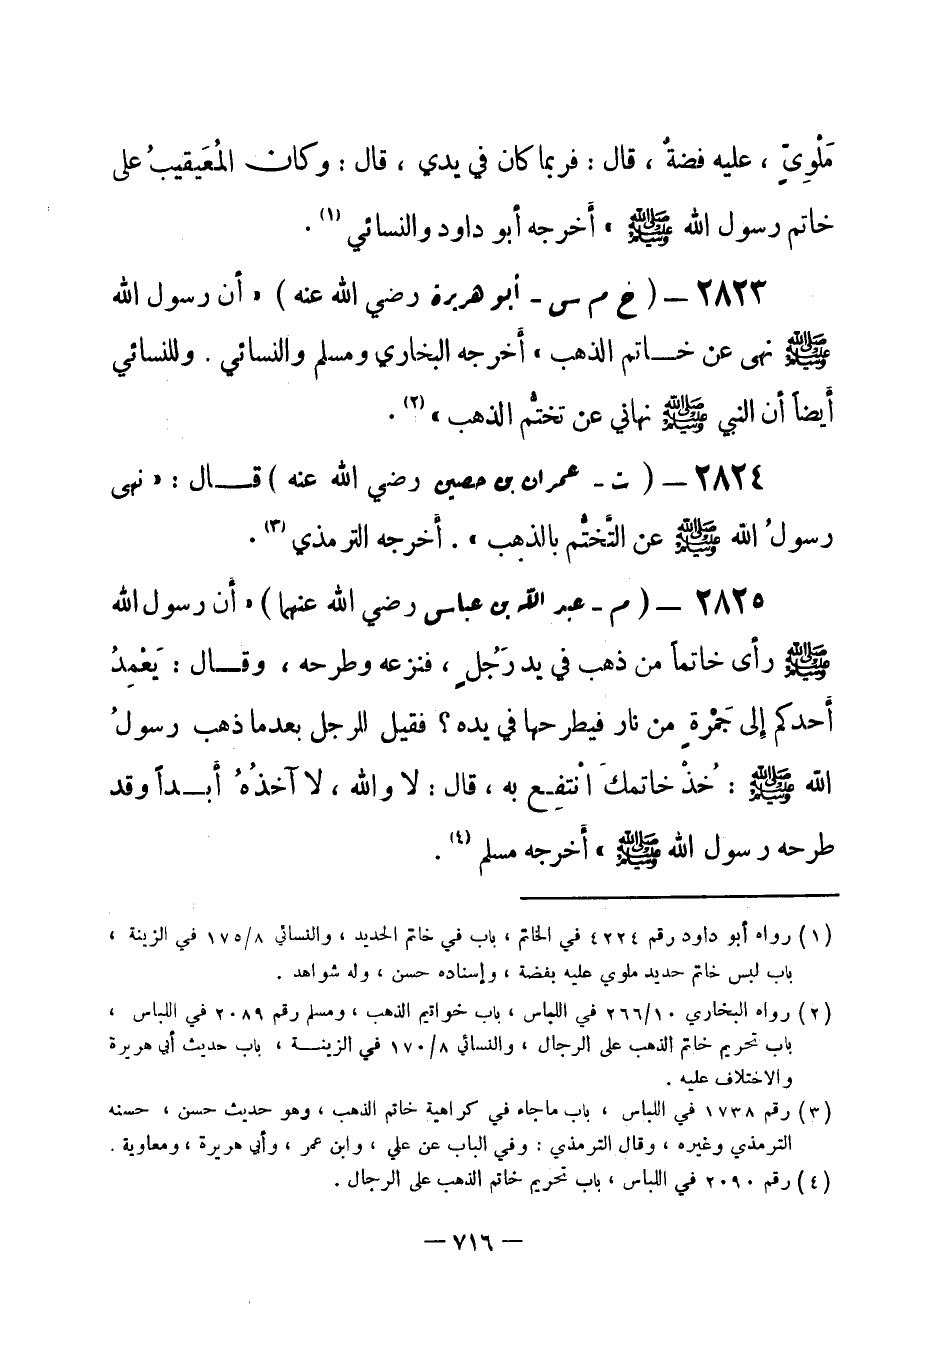 مَلْوِيٍّ ، عليه فضةٌ ، قال : فربما كان في يدي ، قال : وكان المُعَيقيبُ على
خاتم رسول الله ﷺ » أخرجه أبو داود والنسائي (١) .
٢٨٢٣ – ( خ م س - أبو هريرة رضي الله عنه ) « أن رسول الله
ﷺ نهى عن خـــاتم الذهب » أخرجه البخاري ومسلم والنسائي . وللنسائي
أيضاً أن النبي ﷺ نهاني عن تختُّم الذهب » (٢) .
٢٨٢٤ – ( ت - عمران بن حصين رضي الله عنه ) قـــال : « نهى
رسولُ الله ﷺ عن التَّختُّم بالذهب » . أخرجه الترمذي (٣) .
٢٨٢٥ – ( م - عبد الله بن عباس رضي الله عنهما ) « أن رسول الله
ﷺ رأى خاتماً من ذهب في يد رَجُلٍ ، فنزعه وطرحه ، وقـــال : يَعْمِدُ
أحدكم إلى جَمْرةٍ من نار فيطرحها في يده ؟ فقيل للرجل بعدما ذهب رسولُ
الله ﷺ : خُذْ خاتمكَ انْتفِـع به ، قال : لا والله ، لا آخذُهُ أبـــداً وقد
طرحه رسول الله ﷺ » أخرجه مسلم (٤) .
(١) رواه أبو داود رقم ٤٢٢٤ في الخاتم ، باب في خاتم الحديد ، والنسائي ١٧٥/٨ في الزينة ،
باب لبس خاتم حديد ملوي عليه بفضة ، وإسناده حسن ، وله شواهد .
(٢) رواه البخاري ٢٦٦/١٠ في اللباس ، باب خواتيم الذهب ، ومسلم رقم ٢٠٨٩ في اللباس ،
باب تحريم خاتم الذهب على الرجال ، والنسائي ١٧٠/٨ في الزينـــة ، باب حديث أبي هريرة
والاختلاف عليه .
(٣) رقم ١٧٣٨ في اللباس ، باب ماجاء في كراهية خاتم الذهب ، وهو حديث حسن ، حسنه
الترمذي وغيره ، وقال الترمذي : وفي الباب عن علي ، وابن عمر ، وأبي هريرة ، ومعاوية .
(٤) رقم ٢٠٩٠ في اللباس ، باب تحريم خاتم الذهب على الرجال .
– ٧١٦ –